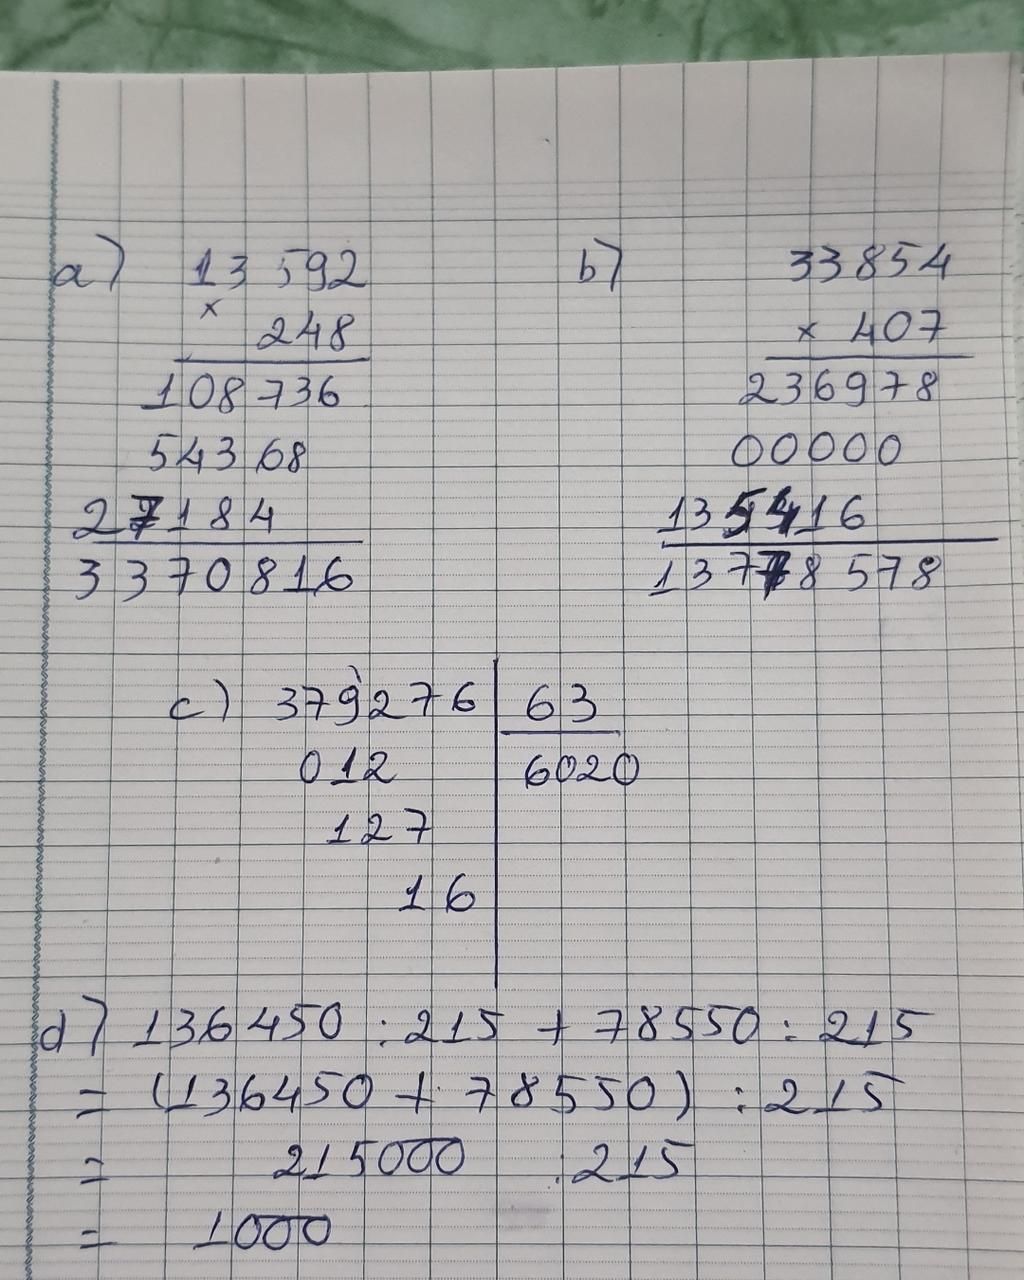 a) 13 592
×
248
108736
54368
27184
3370816
b) 33854
× 407
236978
00000
135416
13778578
c) 379276 63
012 6020
127
16
d) 136450 : 215 + 78550 : 215
= (136450 + 78550) : 215
= 215000 : 215
= 1000